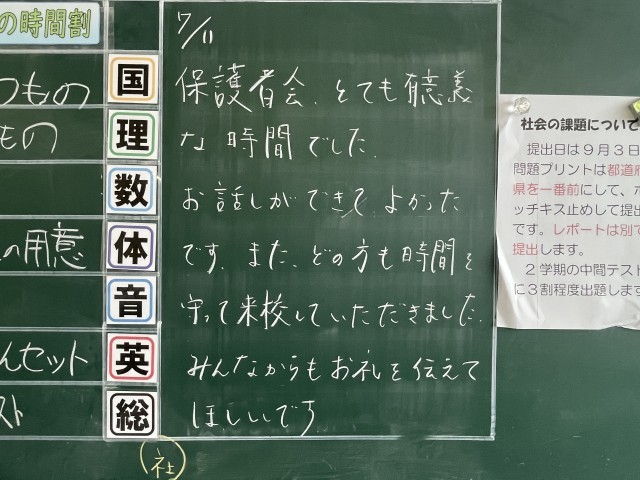 の時間割
つもの
もの
の用意
んセット
スト
国
理
数
体
音
英
総
社
7/11
保護者会、とても有意義
な時間でした。
お話しができて、よかった
です。また、どの方も時間を
守って来校していただきました。
みんなからもお礼を伝えて
ほしいです
社会の課題について
提出日は９月３日
問題プリントは都道府
県を一番前にして、ホ
ッチキス止めして提出
です。レポートは別で
提出します。
２学期の中間テスト
に３割程度出題します